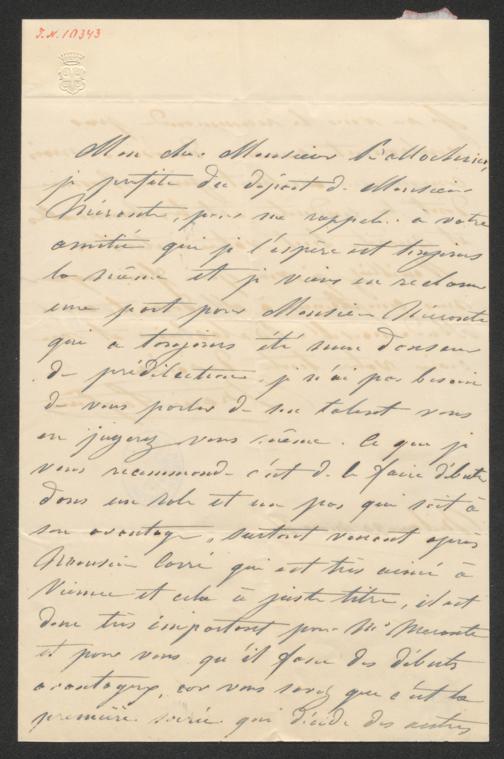 I.N. 10343
Mon cher Monsieur
je profite du départ de Monsieur
Mérante, pour me rappeler a votre
amitié qui je l'espère est toujours
la même et je viens en reclamer
une part pour Monsieur Mérante
qui a toujours été mon danseur
de prédilection, je n'ai pas besoin
de vous parler de son talent vous
en jugerez vous même. Ce que je
vous recommande c'est de le faire débuter
dans un role et un pas qui soit à
son avantage, surtout venant après
Monsieur Carré qui est très aimé à
Vienne et cela à juste titre, il est
donc très important pour Mr Merante
et pour vous qu'il fasse des débuts
avantageux, car vous savez que c'est la
première soirée qui décide des autres